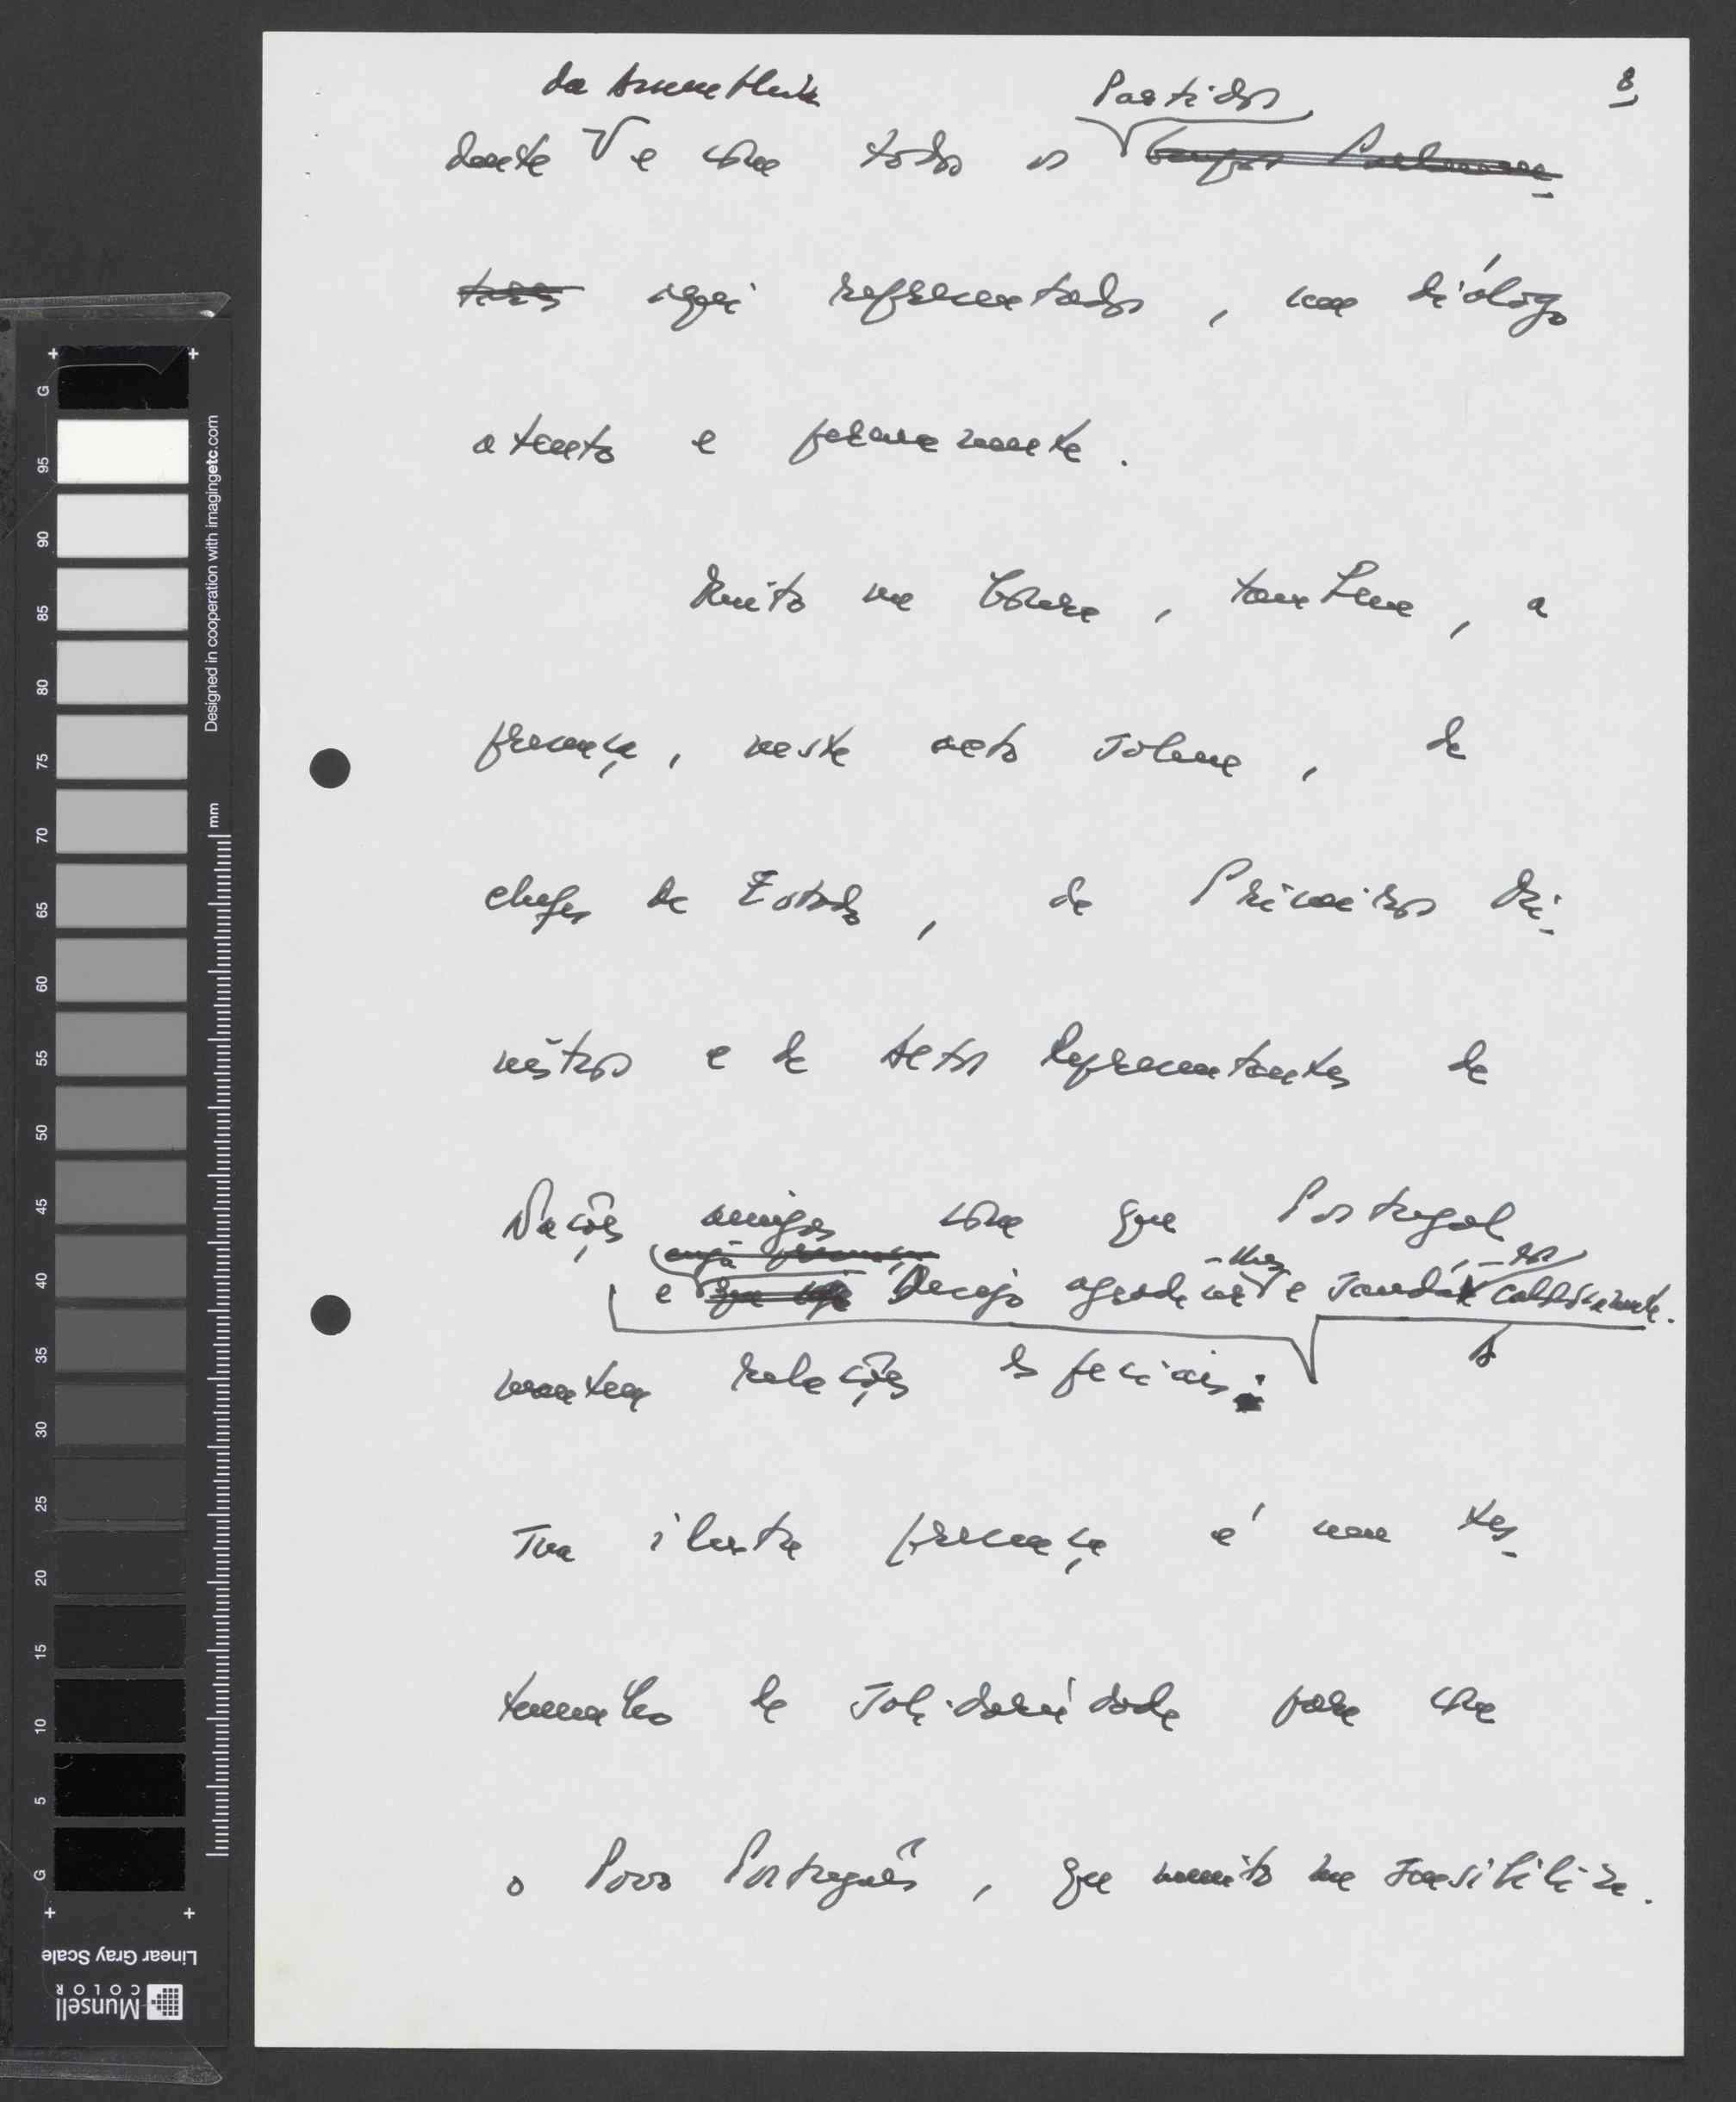 8
da Assembleia
Partidos
dente V e com todos os Grupos Parlamen-
tares aqui representados, um diálogo
atento e permanente.
Muito me honra, também, a
presença, neste acto solene, de
chefes de Estado, de Primeiros Mi-
nistros e de Altos Representantes de
Nações amigas com que Portugal
cuja presença
e Desejo agradecer-lhes e saudá-los calorosamente.
mantem relações especiais.
A
Sua ilustre presença é um tes-
temunho de solidariedade para com
o Povo Português, que muito me sensibiliza.
Designed in cooperation with imagingetc.com
mm
G
95
90
85
80
75
70
65
60
55
50
45
40
35
30
25
20
15
10
5
G
Linear Gray Scale
Munsell
COLOR